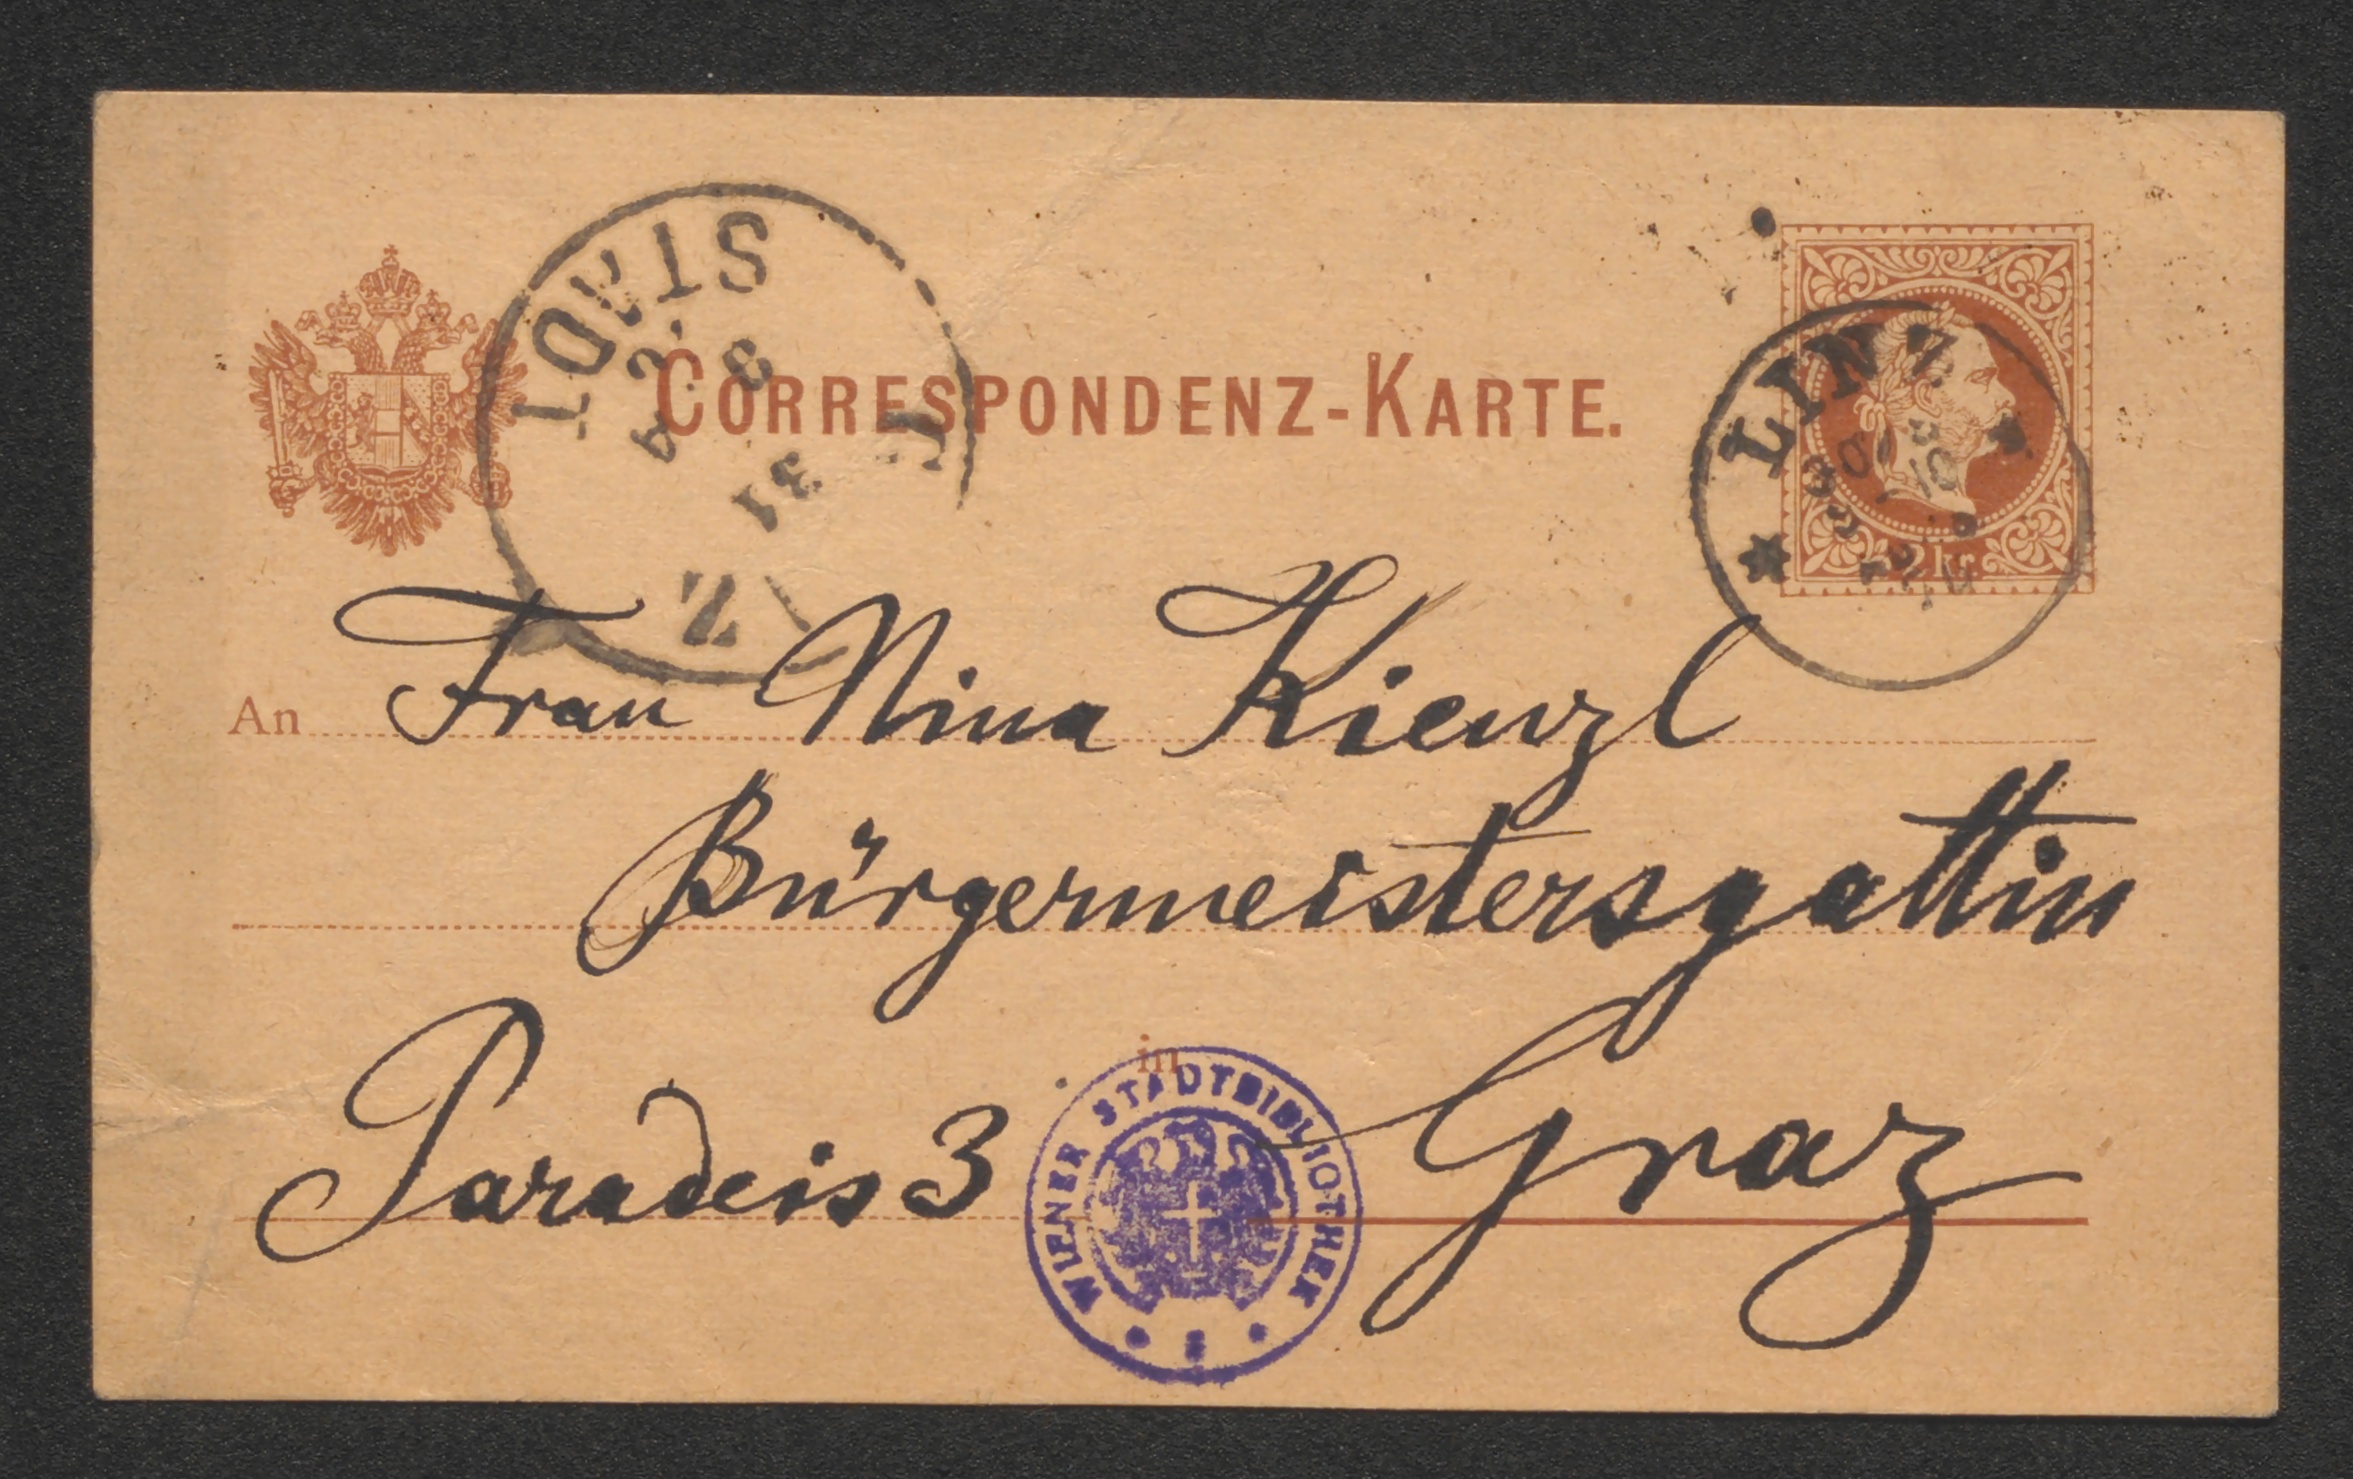 CORRESPONDENZ-KARTE.
STADT
3
31
LINZ
2 kr.
An Frau Nina Kienzl
Bürgermeistersgattin
in
Paradeis 3 Graz
WIENER STADTBIBLIOTHEK